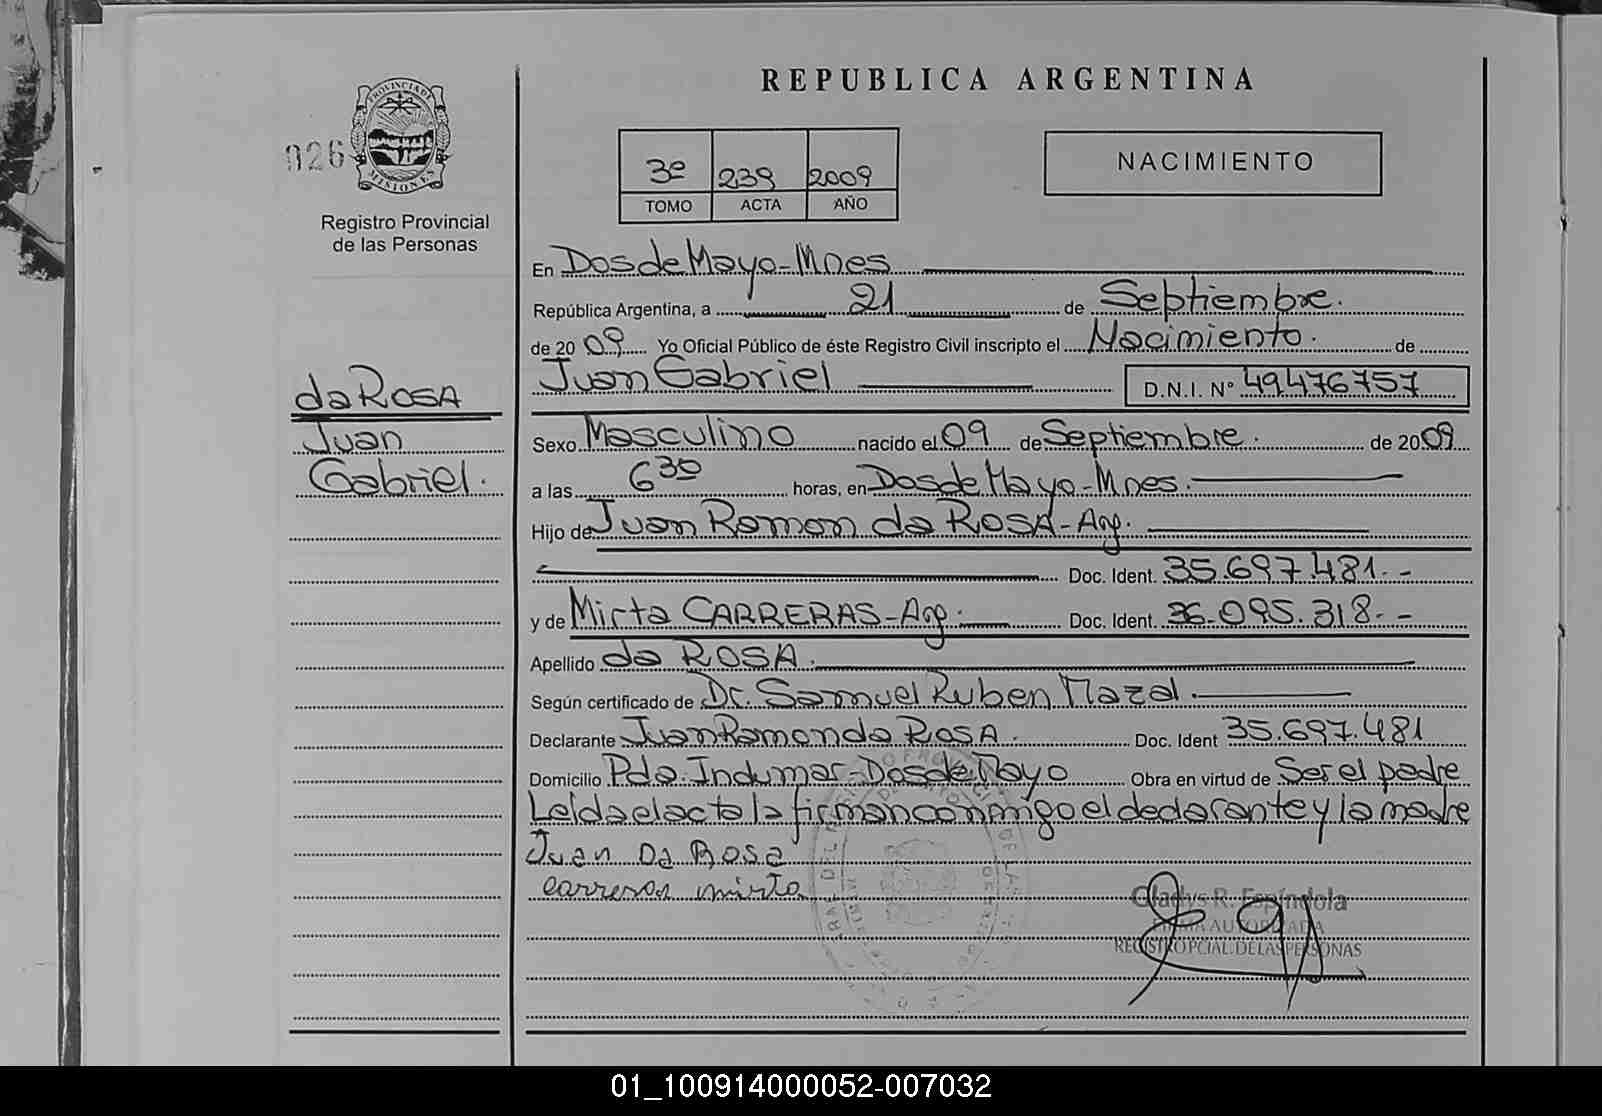 REPUBLICA ARGENTINA
026
PROVINCIA DE
MISIONES
Registro Provincial
de las Personas
3º 239 2009
TOMO ACTA AÑO
NACIMIENTO
da ROSA
Juan
Gabriel.
En Dos de Mayo - Mnes
República Argentina, a 21 de Septiembre.
de 20 09 Yo Oficial Público de éste Registro Civil inscripto el Nacimiento. de
Juan Gabriel D.N.I. Nº 49476757
Sexo Masculino nacido el 09 de Septiembre. de 20 09
a las 6 30 horas, en Dos de Mayo - Mnes.
Hijo de Juan Ramon da ROSA - Arg.
Doc. Ident. 35.697.481.-
y de Mirta CARRERAS - Arg. Doc. Ident. 36.095.318.-
Apellido da ROSA.
Según certificado de Dr. Samuel Ruben Mazal.
Declarante Juan Ramon da ROSA. Doc. Ident 35.697.481
Domicilio Pda. Indumar - Dos de Mayo Obra en virtud de Ser el padre
Leída el acta la firman conmigo el declarante y la madre
Juan Da Rosa
carreras mirta
Gladys R. Espíndola
FIRMA AUTORIZADA
REGISTRO PCIAL. DE LAS PERSONAS
01_100914000052-007032